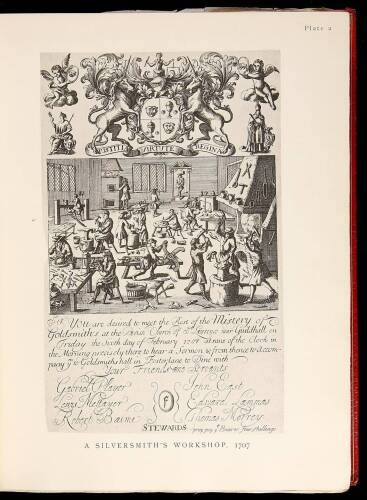 Plate 2
JUSTITIA VIRTUTE REGINA
Sr. You are desired to meet the Rest of the Mistery of
Goldsmiths at the Church of St. near Guildhall on
Fryday the Sixth day of February 1707 at nine of the Clock in
the Morning precisely there to hear a Sermon & from thence to Accom-
pany to Goldsmiths hall in Foster lane to Dine with
Your Friends and Servants
Gabriel Player
John East
Lewis Mettayer
Edward
Robert
Thomas
STEWARDS
pray pay ye Bearer Four shillings
A SILVERSMITH'S WORKSHOP, 1707